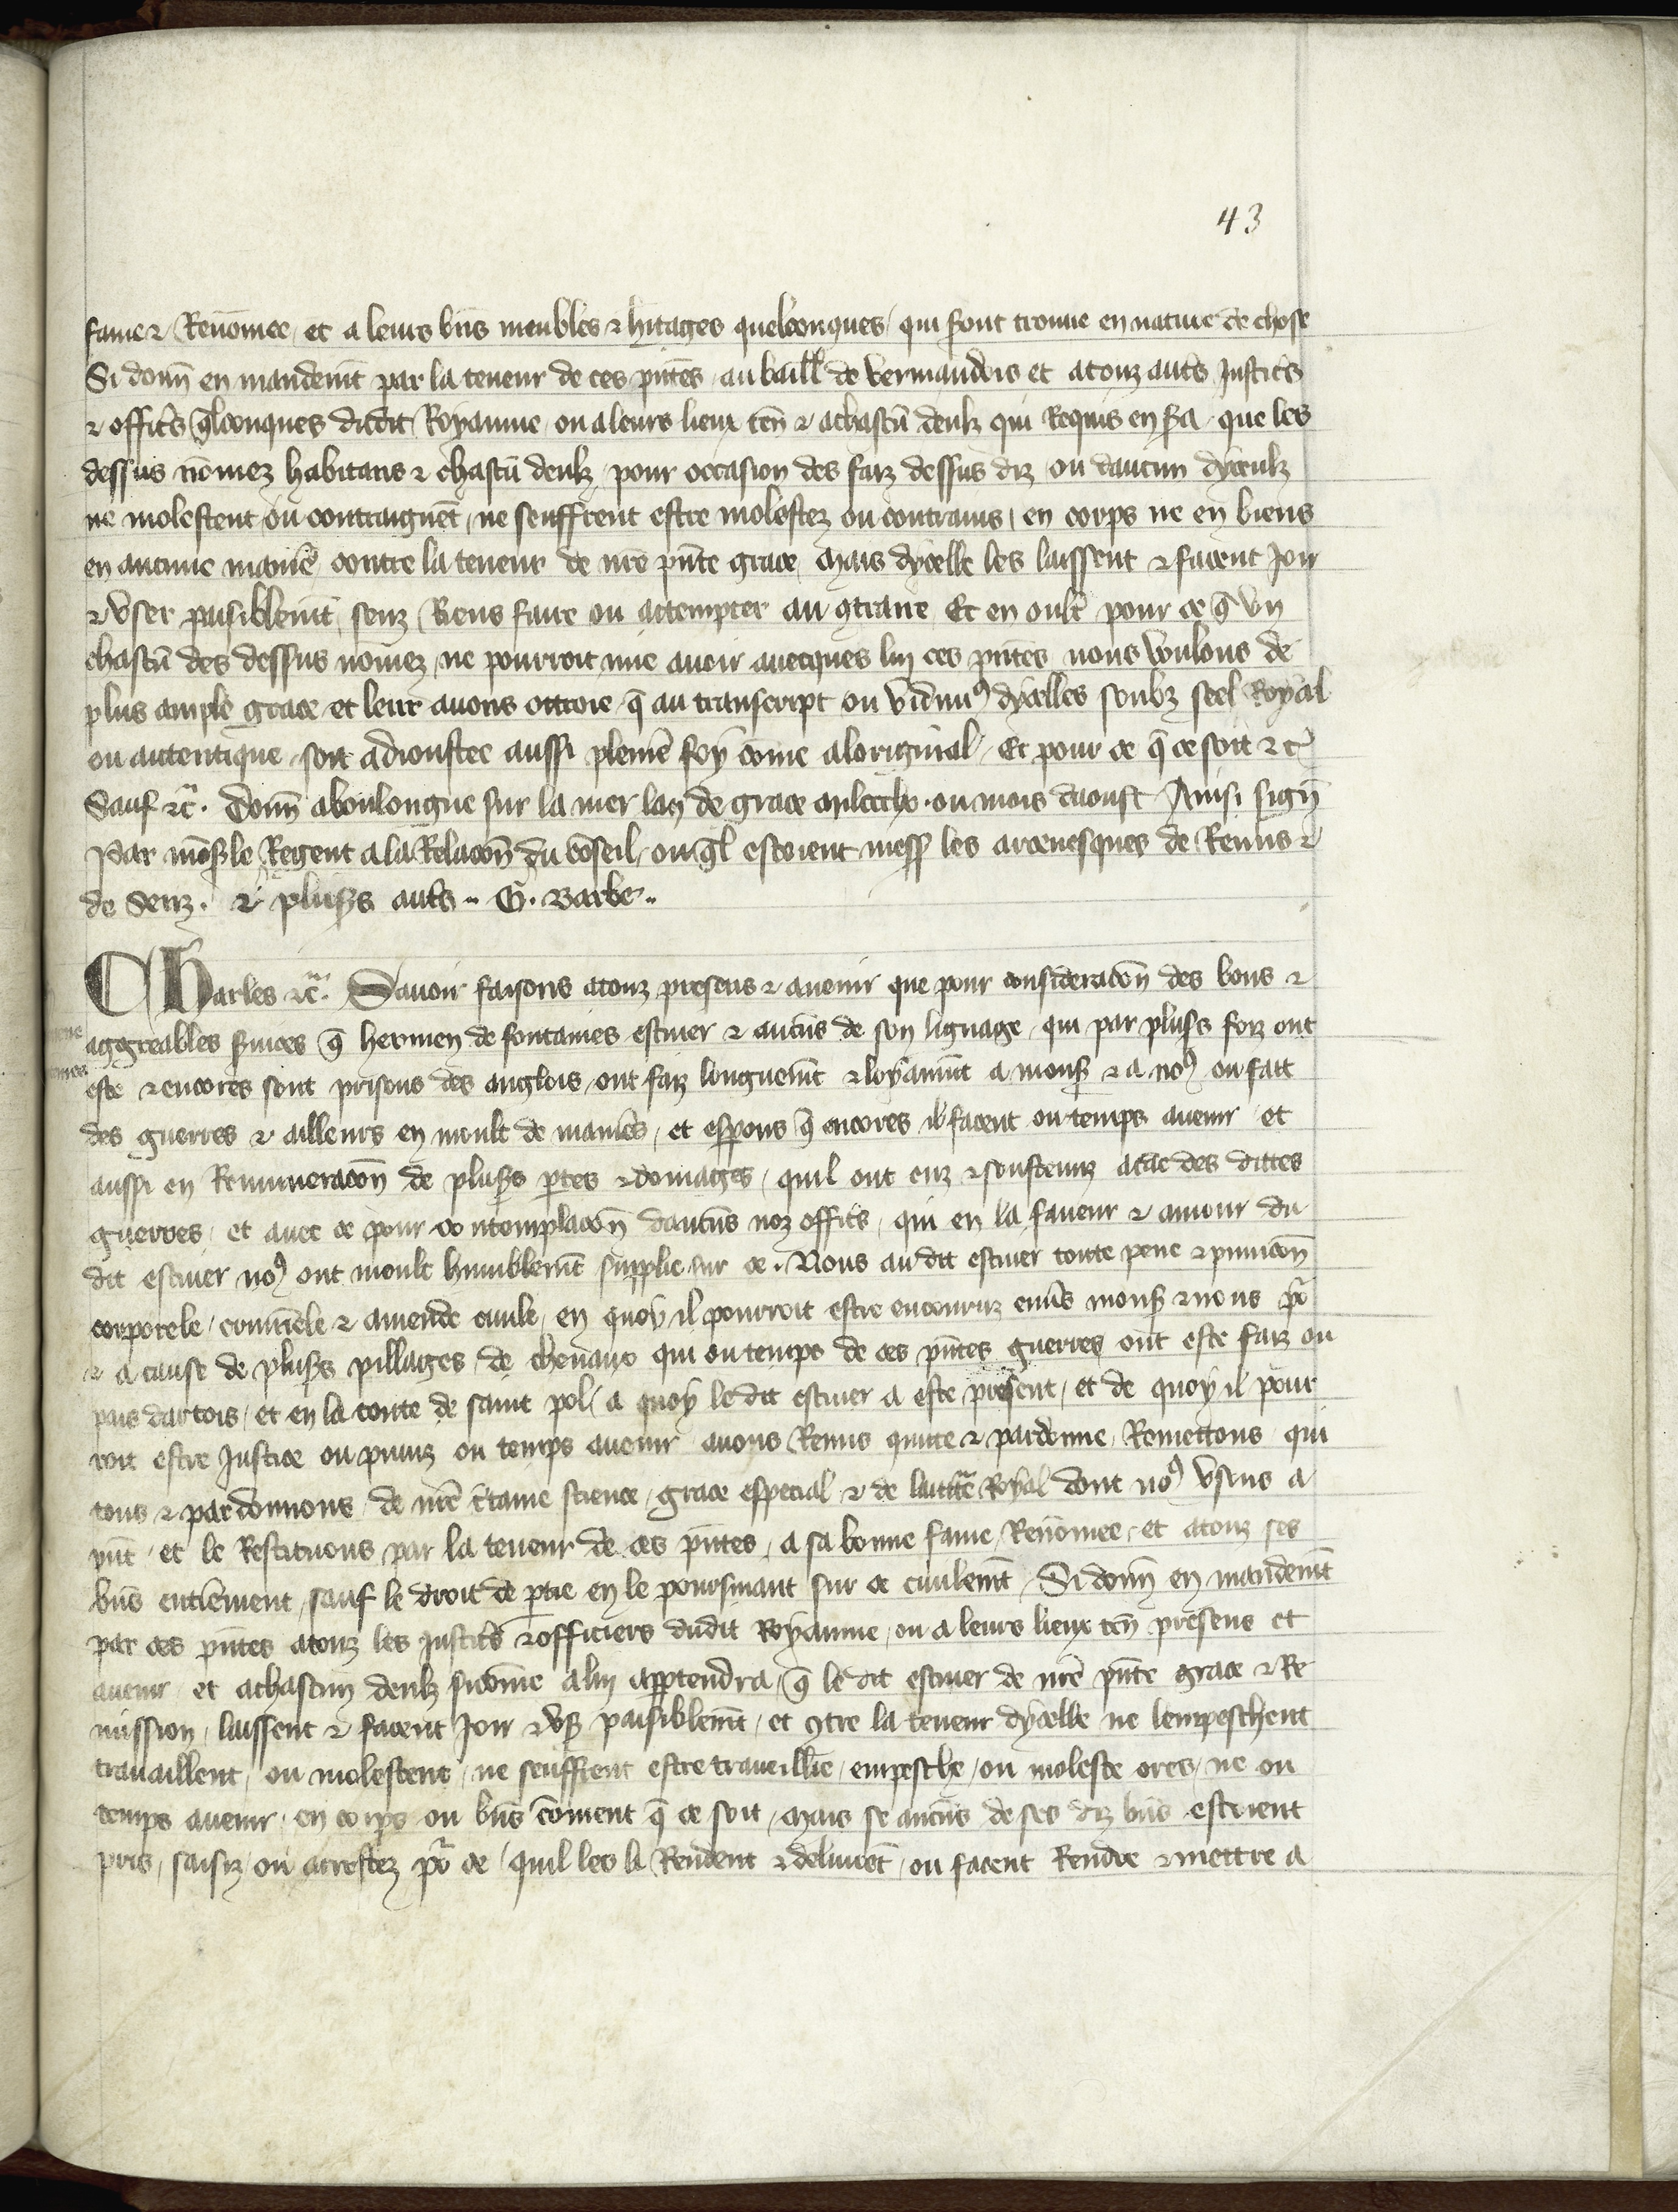 43
fame ⁊ Renōmee, et a leurs bn̄s meubles ⁊ h̄itages quelconques, qui sont trouue en nature de chose
Si donn̄ en mandem̄t par la teneur de ces p̄ntes, au baill̄ de vermandois et a touz aut̄s Justic̄s
⁊ offic̄s q̄lconques dudit Royaume, ou a leurs lieux ten̄ ⁊ a chascū deulz qui Requis en s̄a, que les
dessus nōmez habitans ⁊ chascū deulz, pour occasion des faiz dessus diz, ou daucun dyceulz
ne molestent ou contraignēt, ne seuffrent estre molestez ou contrains, en corps ne en biens
en aucune manie᷒, contre la teneur de nr̄e p̄nte grace, Mais dycelle les laissent ⁊ facent Joir
⁊ vser paisiblem̄t, senz Riens faire ou actempter au ꝯtraire, Et en oult̄ pour ce q̄ vn
chascū des dessus nōmez, ne pourroit mie auoir auecques lui ces p̄ntes, nous voulons de
plus ample grace, et leur auons ottroie, q̄ au transcript ou vidimꝰ dycelles soubz seel Royal
ou autentique, soit adioustee aussi pleniē foy cōme a loriginal, Et pour ce q̄ ce soit ⁊c̄
Sauf ⁊c̄. Donn̄ a boulongne sur la mer lan de grace m.ccclx. ou mois daoust Ainsi sign̄
Par mōs̄ le Regent a la Relacōn du cōseil, ou q̄l estoient mess̄ les arceuesques de Reims ⁊
de Senz. ⁊ plus̄s aut̄s.. G. Barbe..
CHarles ⁊c̄. Sauoir faisons a touz presens ⁊ auenir que pour consideracōn des bons ⁊
aggreables s̄uices q̄ hermen de fontaines escuier ⁊ aucūs de son lignage, qui par plus̄s foiz ont
este ⁊ encores sont prisons des anglois, ont faiz longuem̄t ⁊ loyaum̄t a mons̄ ⁊ a noꝰ ou fait
des guerres ⁊ ailleurs en moult de manie᷒s, et esp̄ons q̄ encores il facent ou temps auenir et
aussi en Remuneracōn de plus̄s p̄tes ⁊ domages, quil ont euz ⁊ soustenuz a cāe des dittes
guerres, et auec ce pour contemplacōn daucūs noz offic̄s, qui en la faueur ⁊ amour du
dit escuier noꝰ ont moult humblem̄t supplie sur ce. Nous au dit escuier toute pene ⁊ punicōn
corporele, crim̄ele ⁊ amende ciuile, en quoy il pourroit estre encouruz enūs mons̄ ⁊ nous po᷒
⁊ a cause de plus̄s pillages, de cheuaux qui ou temps de ces p̄ntes guerres ont este faiz ou
pais dartois, et en la conte de saint pol, a quoy le dit escuier a este present, et de quoy il pour
roit estre Justice ou puniz ou temps auenir auons Remis quitte ⁊ pardonne, Remettons qui
tons ⁊ pardonnons, de nr̄e c̄taine science, grace especial ⁊ de lauct̄te Royal dont noꝰ vsons a
p̄nt, et le Restituons par la teneur de ces p̄ntes, a sa bonne fame, Renōmee, et a touz ses
bn̄s entie᷒ment, sauf le droit de p̄tie en le poursuiant sur ce ciuilem̄t, Si donn̄ en mandem̄t
par ces p̄ntes a touz les Justic̄s ⁊ officiers dudit Royaume, ou a leurs lieux ten̄ presens et
auenir, et a chascun deulz si cōme a lui app̄tendra, q̄ le dit escuier de nr̄e p̄nte grace ⁊ Re
mission, laissent ⁊ facent Joir ⁊ vs̄ paisiblem̄t, et ꝯtre la teneur dycelle ne lempeschent
trauaillent, ou molestent, ne seuffrent estre traueillie, empesche, ou moleste ores, ne ou
temps auenir, en corps ou bn̄s cōment q̄ ce soit, Mais se aucūs de ses diz bn̄s estoient
pris, saisiz, ou arrestez po᷒ ce, quil les li Rendent ⁊ deliurēt, ou facent Rendre ⁊ mettre a